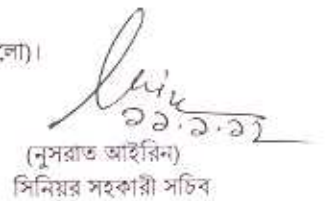 লো)।
১১.১.১২
(নুসরাত আইরিন)
সিনিয়র সহকারী সচিব